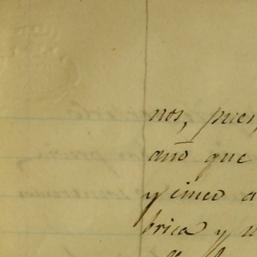 nos, pues,
año que
y cinco a
brica y u